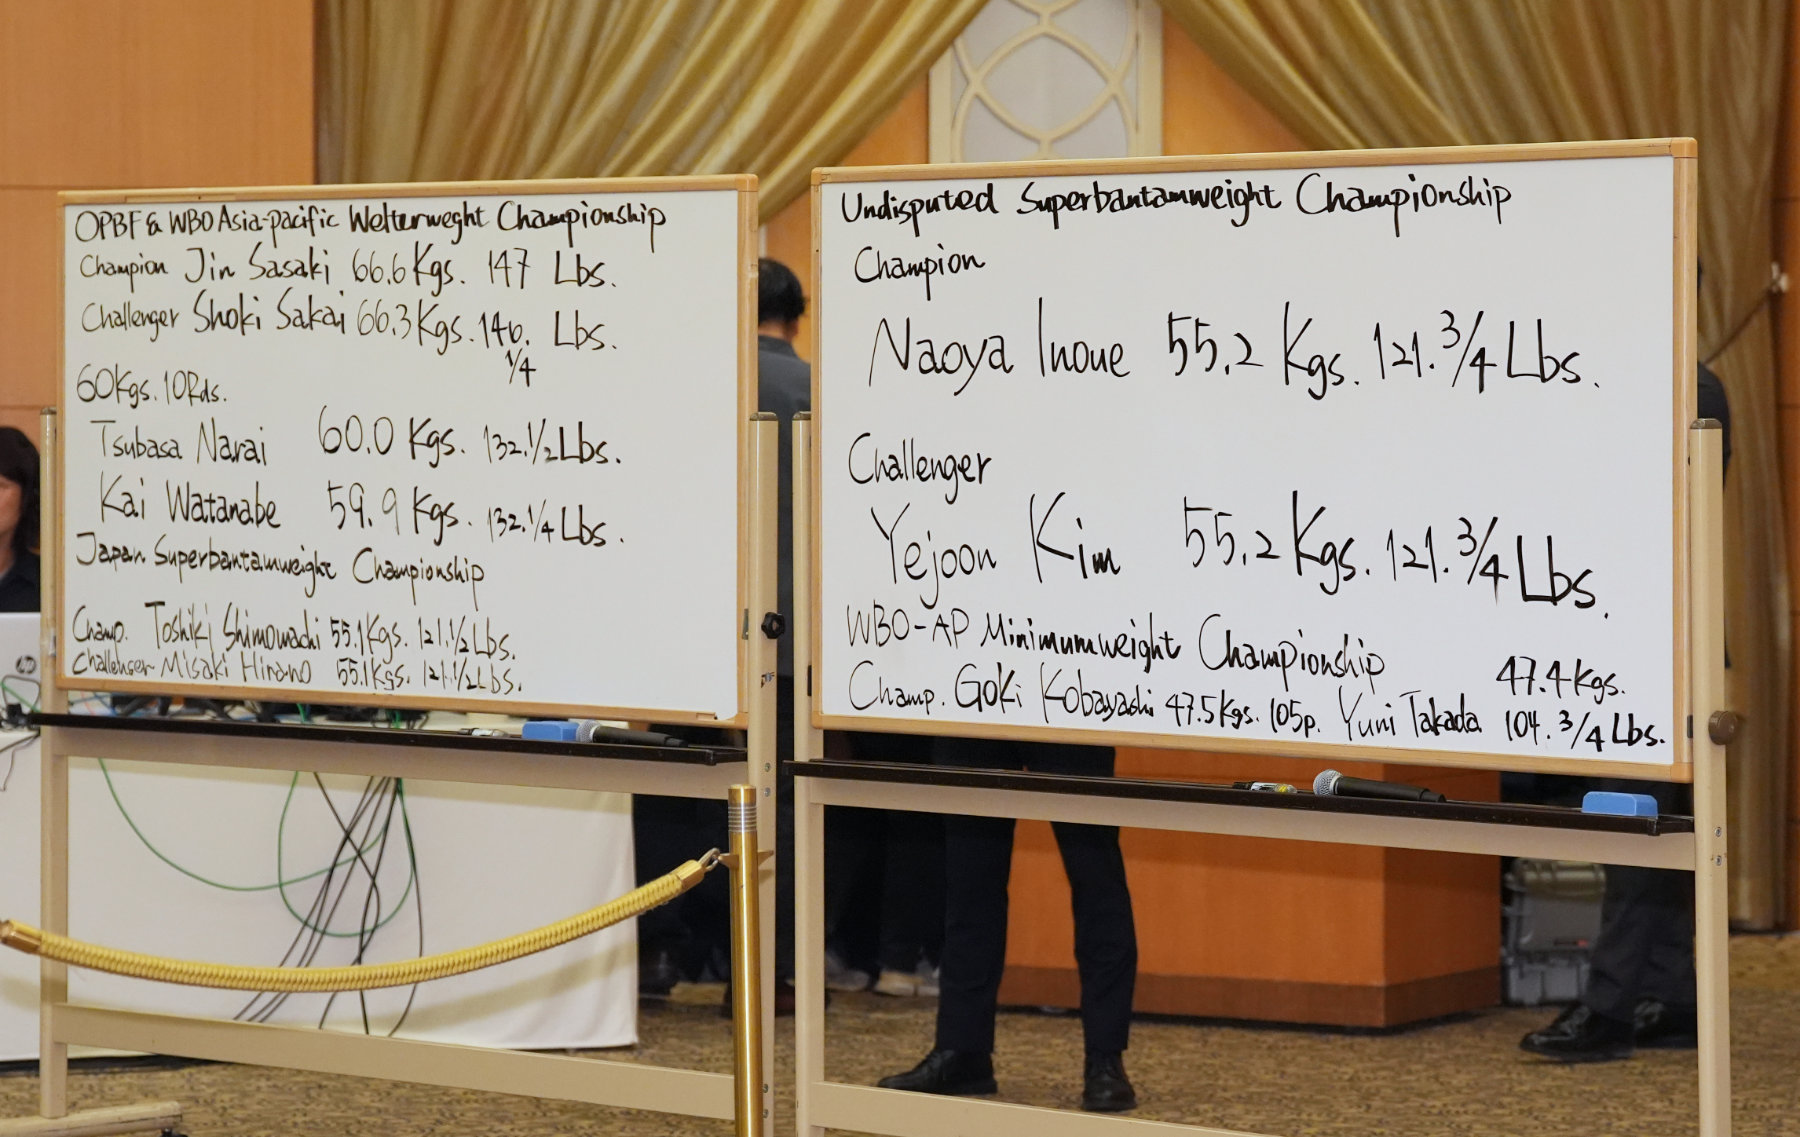 OPBF & WBO Asia-pacific Welterweght Championship
Champion Jin Sasaki 66.6 Kgs. 147 Lbs.
Challenger Shoki Sakai 66.3 Kgs. 146. 1/4 Lbs.
60Kgs. 10Rds.
Tsubasa Narai 60.0 Kgs. 132.1/2 Lbs.
Kai Watanabe 59.9 Kgs. 132.1/4 Lbs.
Japan Superbantamweight Championship
Champ. Toshiki Shimomachi 55.1Kgs. 121.1/2 Lbs.
Challenger Misaki Hirano 55.1Kgs. 121.1/2 Lbs.
hp
Undisputed Superbantamweight Championship
Champion
Naoya Inoue 55.2 Kgs. 121.3/4 Lbs.
Challenger
Yejoon Kim 55.2 Kgs. 121.3/4 Lbs.
WBO-AP Minimumweight Championship
Champ. Goki Kobayashi 47.5Kgs. 105p. Yuni Takada 47.4Kgs. 104.3/4 Lbs.